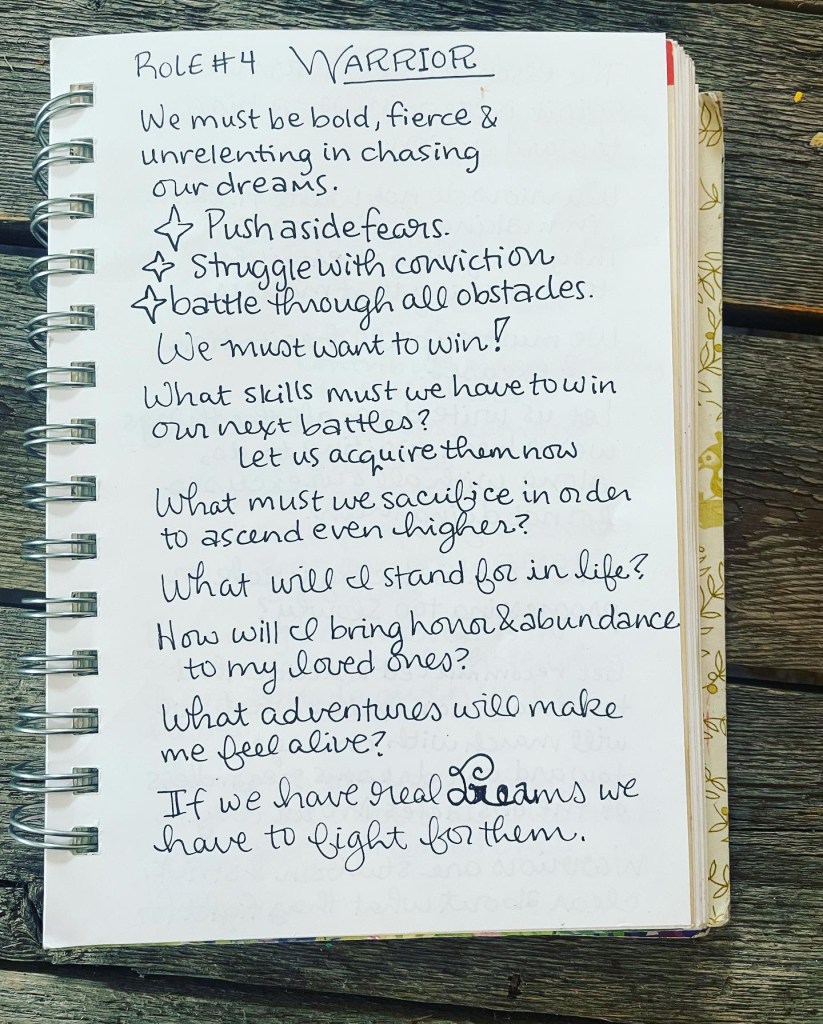 ROLE #4 WARRIOR
We must be bold, fierce &
unrelenting in chasing
our dreams.
Push aside fears.
Struggle with conviction
battle through all obstacles.
We must want to win!
What skills must we have to win
our next battles?
Let us acquire them now
What must we sacrifice in order
to ascend even higher?
What will I stand for in life?
How will I bring honor & abundance
to my loved ones?
What adventures will make
me feel alive?
If we have real Dreams we
have to fight for them.